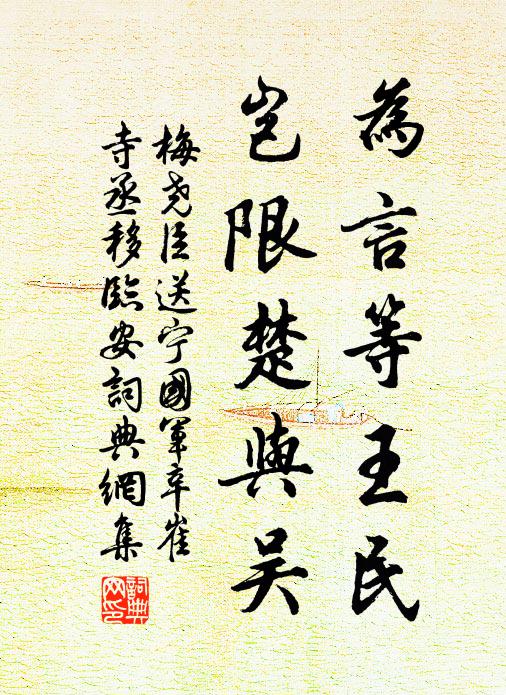 為言等王民
岂限楚與吴
梅尧臣送宁國軍宰崔
寺丞移臨安詞典網集
詞典网印